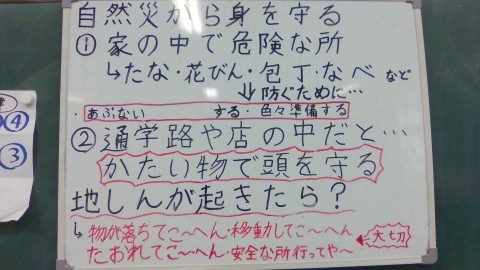 自然災から身を守る
① 家の中で危険な所
↳たな・花びん・包丁・なべ など
⇓防ぐために…
・あぶない する・色々準備する
② 通学路や店の中だと…
かたい物で頭を守る
地しんが起きたら?
↳物が落ちてこ〜へん・移動してこ〜へん
たおれてこ〜へん・安全な所行ってや〜
←大切
④
③